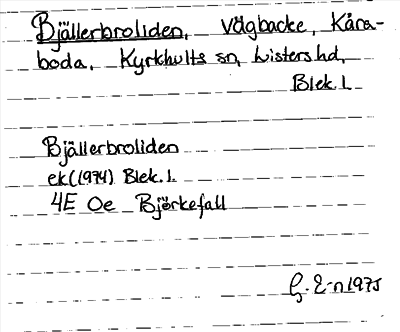 Bjällerbroliden, Vägbacke, Kåra-
boda, Kyrkhults sn, Listers hd,
Blek. l.
Bjällerbroliden
ek (1974) Blek. l.
4E 0e Björkefall
G. E-n 1975